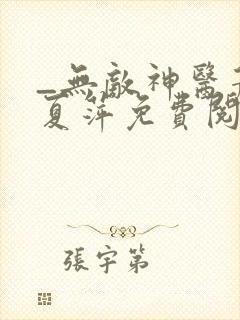 _無敵神醫
夏萍免費閱
張宇第